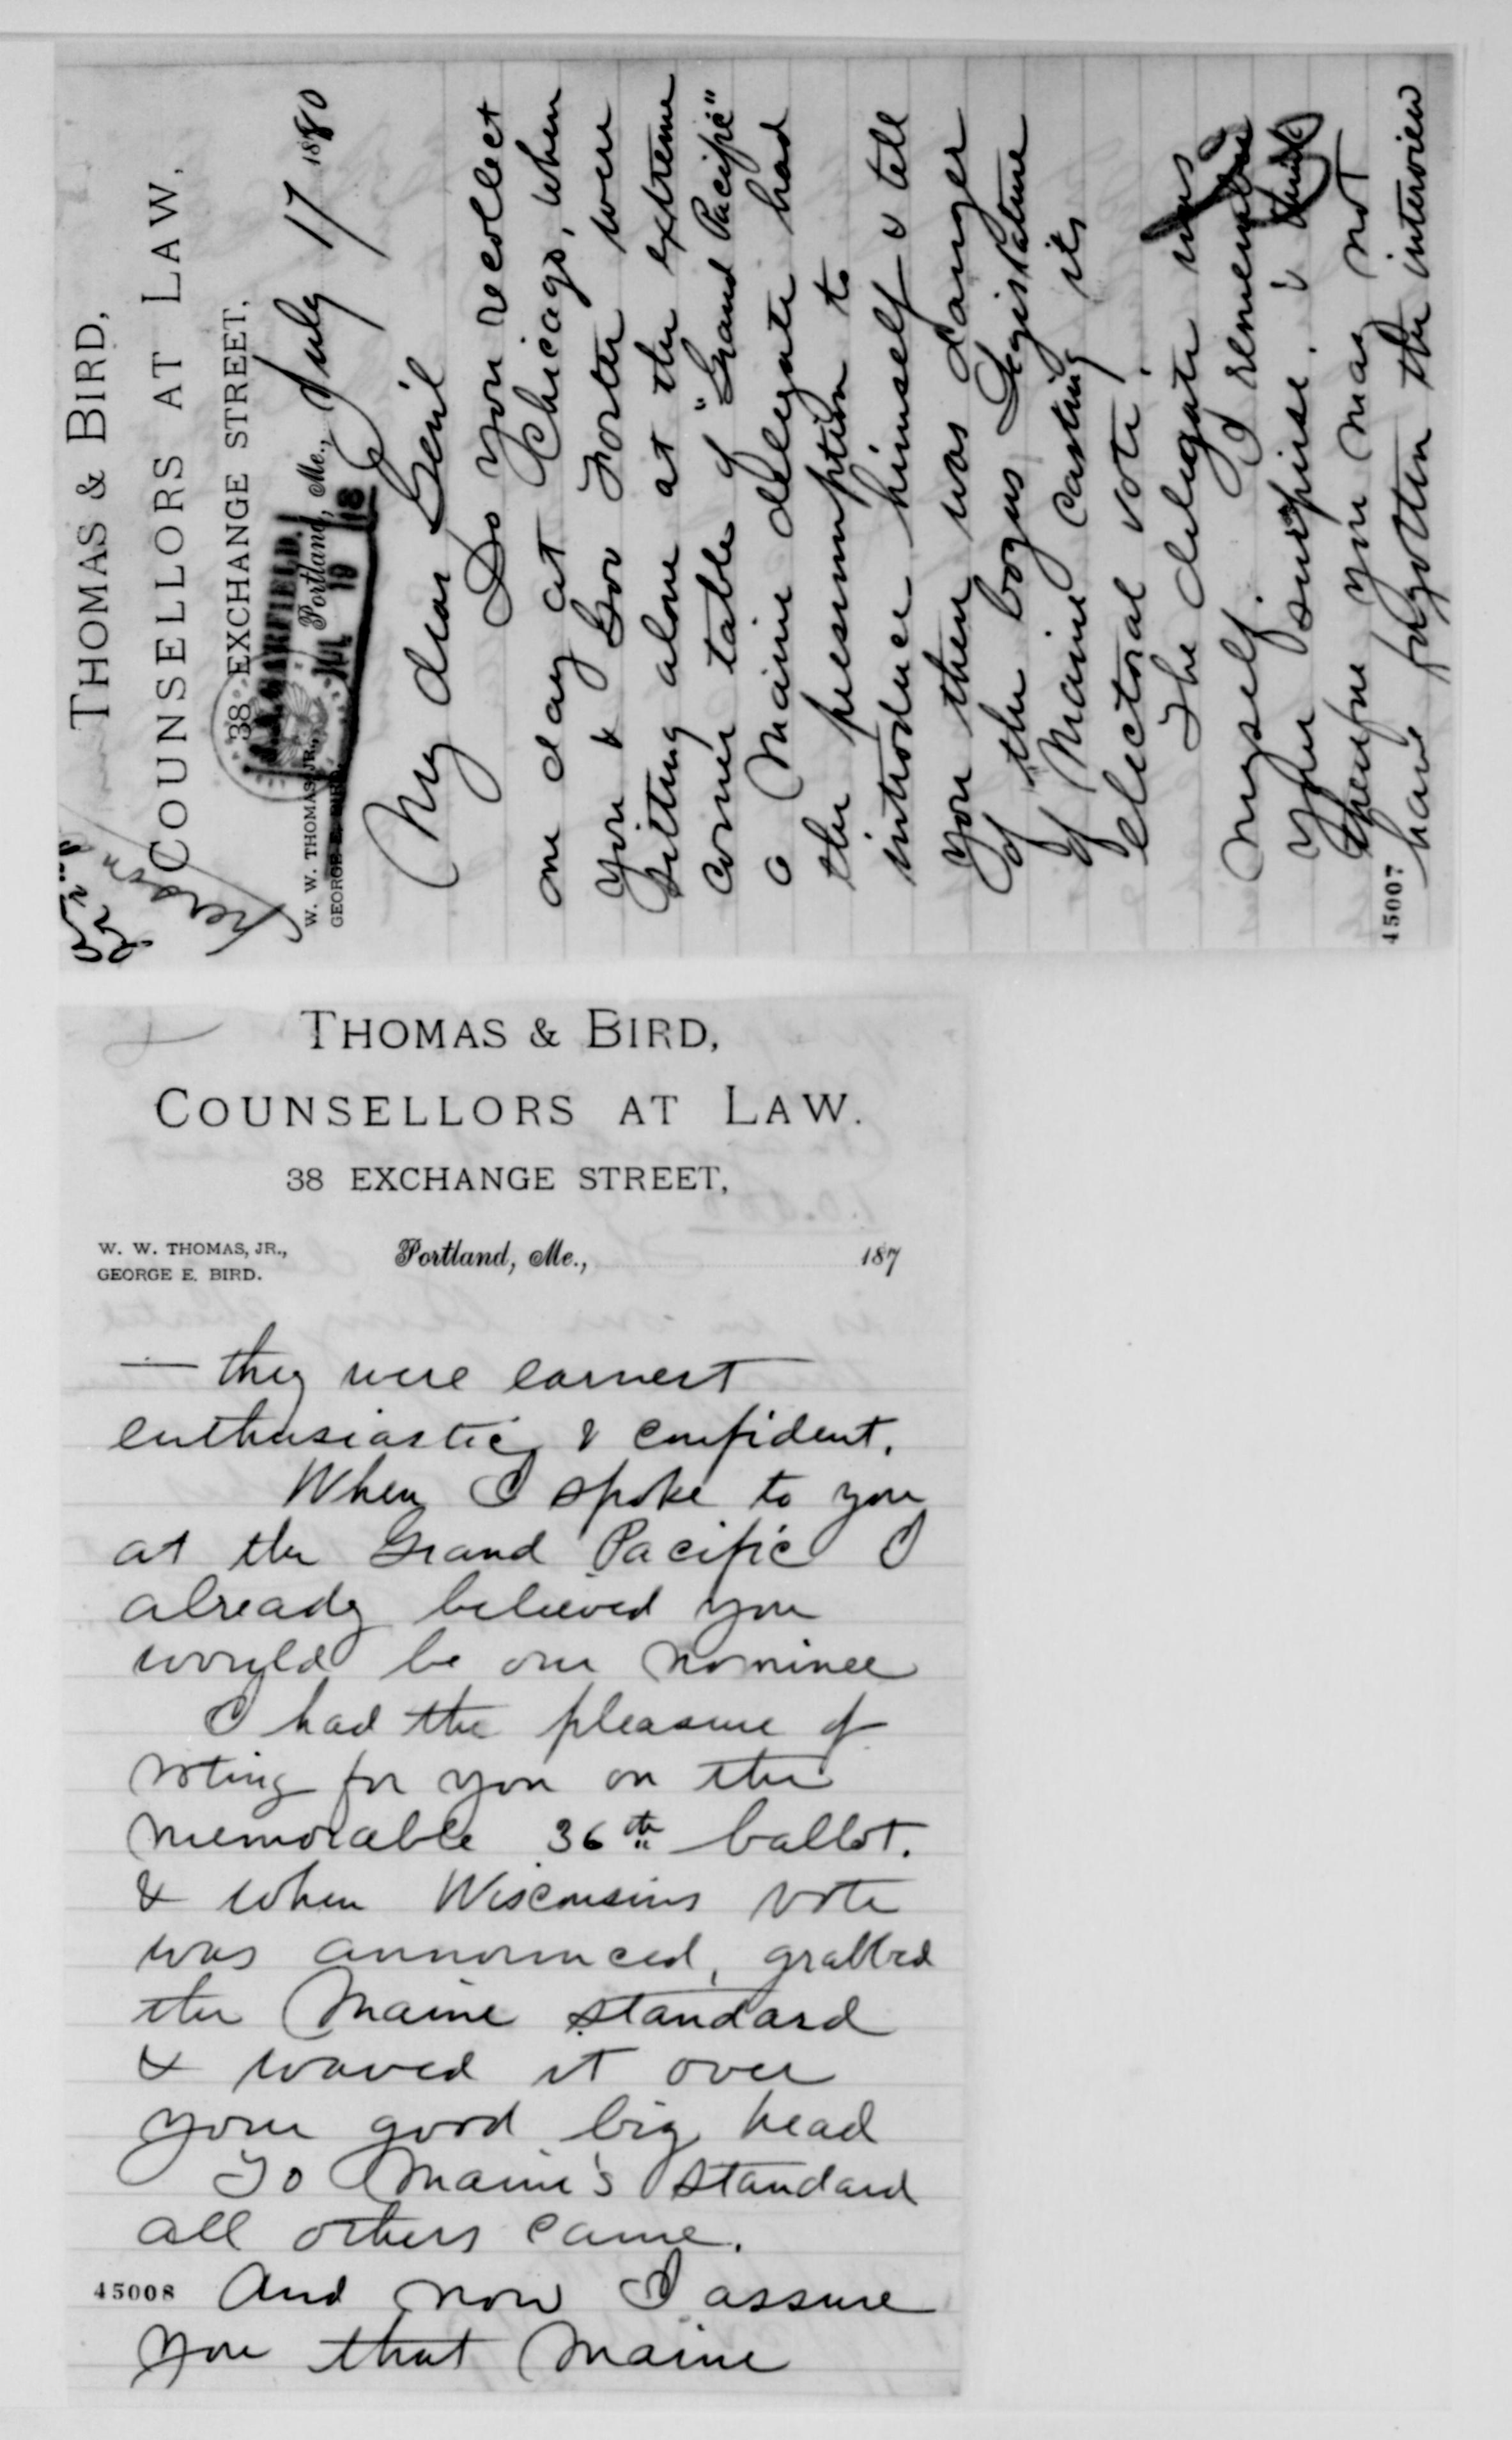 THOMAS & BIRD,
COUNSELLORS AT LAW.
38 EXCHANGE STREET,
W. W. THOMAS, JR.,
GEORGE E. BIRD.
Portland, Me., July 17 1880
J.A. GARFIELD.
JUL 19
My dear Gen'l
Do you recollect
one day at Chicago, when
you & Gov Foster were
sitting alone at the extreme
corner table of "Grand Pacific"
a Maine delegate had
the presumption to
introduce himself & tell
you there was danger
of the bogus Legislature
of Maine casting its
electoral vote.
The delegate was
myself. I remember
your surprise. & think
therefore you may not
have forgotten the interview
45007
THOMAS & BIRD,
COUNSELLORS AT LAW.
38 EXCHANGE STREET,
W. W. THOMAS, JR.,
GEORGE E. BIRD.
Portland, Me., 187
— they were earnest
enthusiastic & confident.
When I spoke to you
at the Grand Pacific I
already believed you
would be our nominee
I had the pleasure of
voting for you on the
memorable 36th ballot.
& when Wisconsins vote
was announced, grabbed
the Maine standard
& waved it over
your good big head
To Maine's standard
all others came.
45008 And now I assure
you that Maine